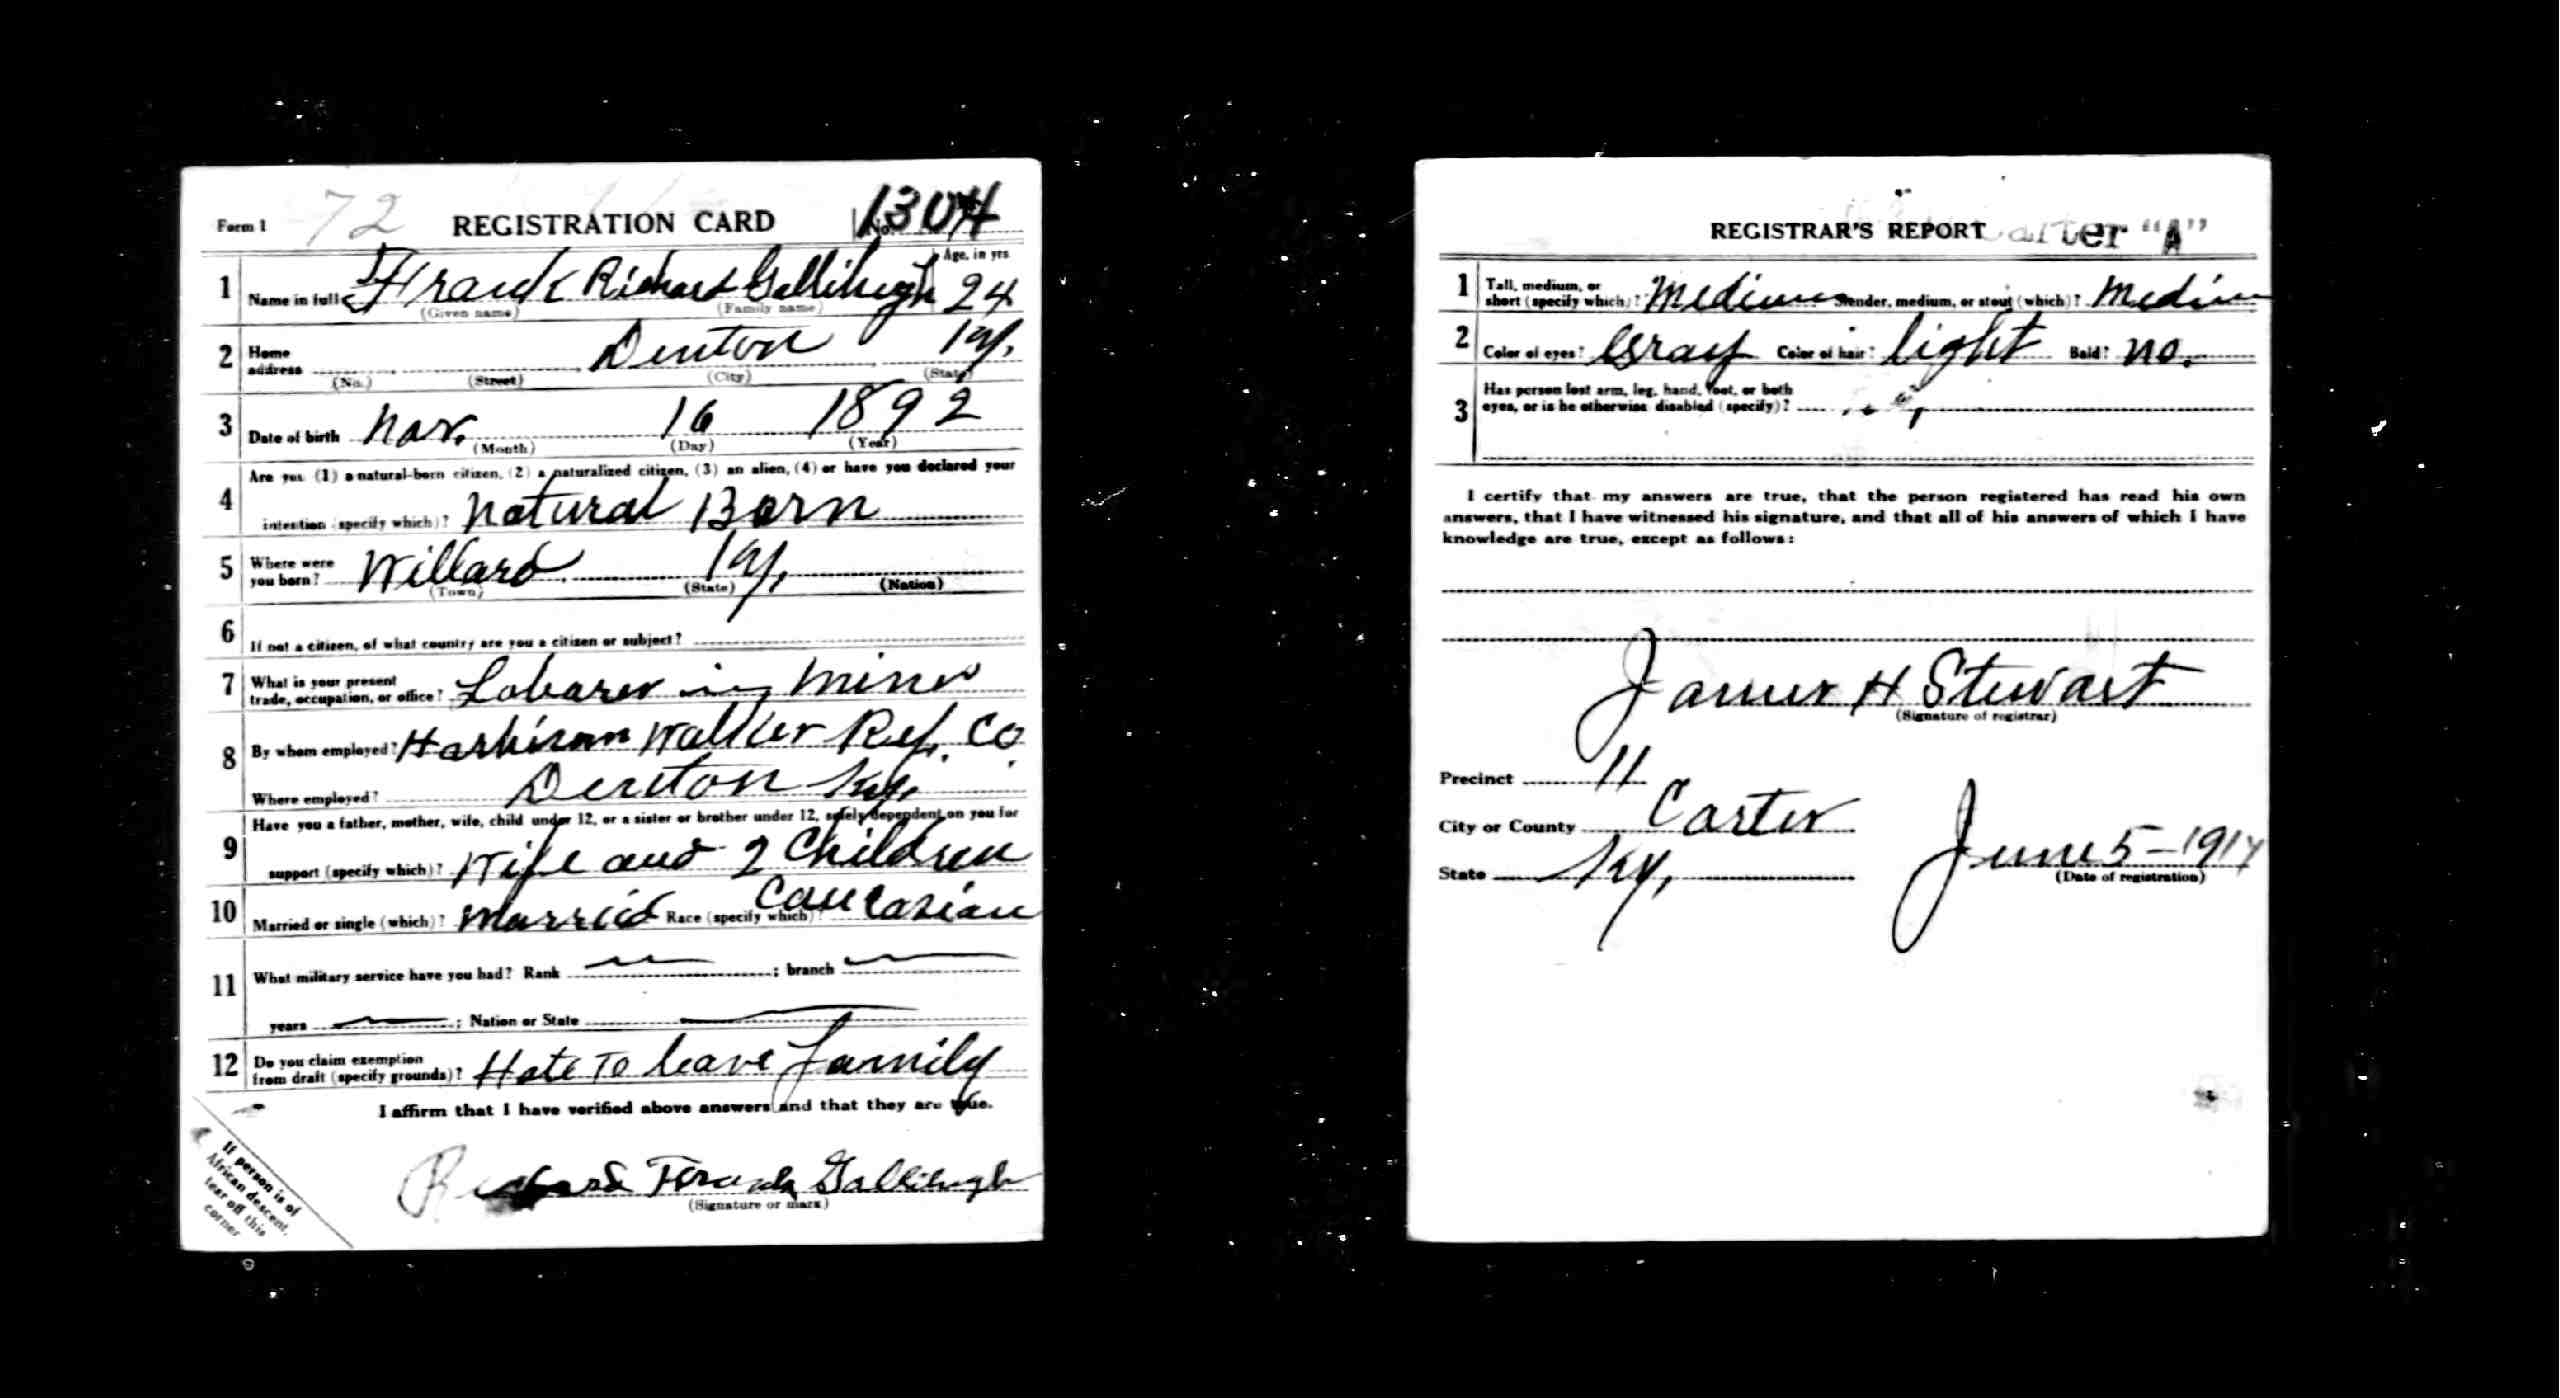 Form 1 72 REGISTRATION CARD No. 1304
1 Name in full Frank Richard Gallihugh Age, in yrs 24
(Given name) (Family name)
2 Home address Denton Ky.
(No.) (Street) (City) (State)
3 Date of birth Nov. 16 1892
(Month) (Day) (Year)
4 Are you (1) a natural-born citizen, (2) a naturalized citizen, (3) an alien, (4) or have you declared your
intention (specify which)? Natural Born
5 Where were you born? Willard Ky.
(Town) (State) (Nation)
6 If not a citizen, of what country are you a citizen or subject?
7 What is your present trade, occupation, or office? Labarer in Mines
8 By whom employed? Harbison Walker Ref. Co
Where employed? Denton Ky.
9 Have you a father, mother, wife, child under 12, or a sister or brother under 12, solely dependent on you for
support (specify which)? Wife and 2 Children
10 Married or single (which)? Married Race (specify which)? Caucasian
11 What military service have you had? Rank ; branch
years ; Nation or State
12 Do you claim exemption from draft (specify grounds)? Hate To leave family
I affirm that I have verified above answers and that they are true.
Richard Frank Gallihugh
(Signature or mark)
If person is of
African descent,
tear off this
corner
REGISTRAR'S REPORT Carter "A"
1 Tall, medium, or short (specify which)? Medium Slender, medium, or stout (which)? Medium
2 Color of eyes? Gray Color of hair? light Bald? no.
3 Has person lost arm, leg, hand, foot, or both
eyes, or is he otherwise disabled (specify)? no,
I certify that my answers are true, that the person registered has read his own
answers, that I have witnessed his signature, and that all of his answers of which I have
knowledge are true, except as follows:
James H Stewart
(Signature of registrar)
Precinct 11
City or County Carter
State Ky.
June 5-1917
(Date of registration)